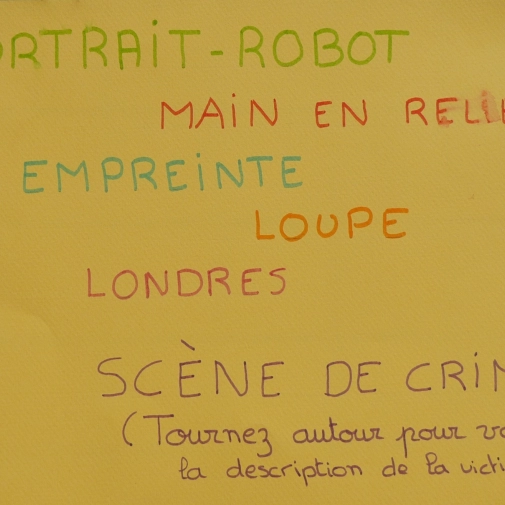 ORTRAIT-ROBOT
MAIN EN RELIE
EMPREINTE
LOUPE
LONDRES
SCÈNE DE CRIM
(Tournez autour pour vo
la description de la victi